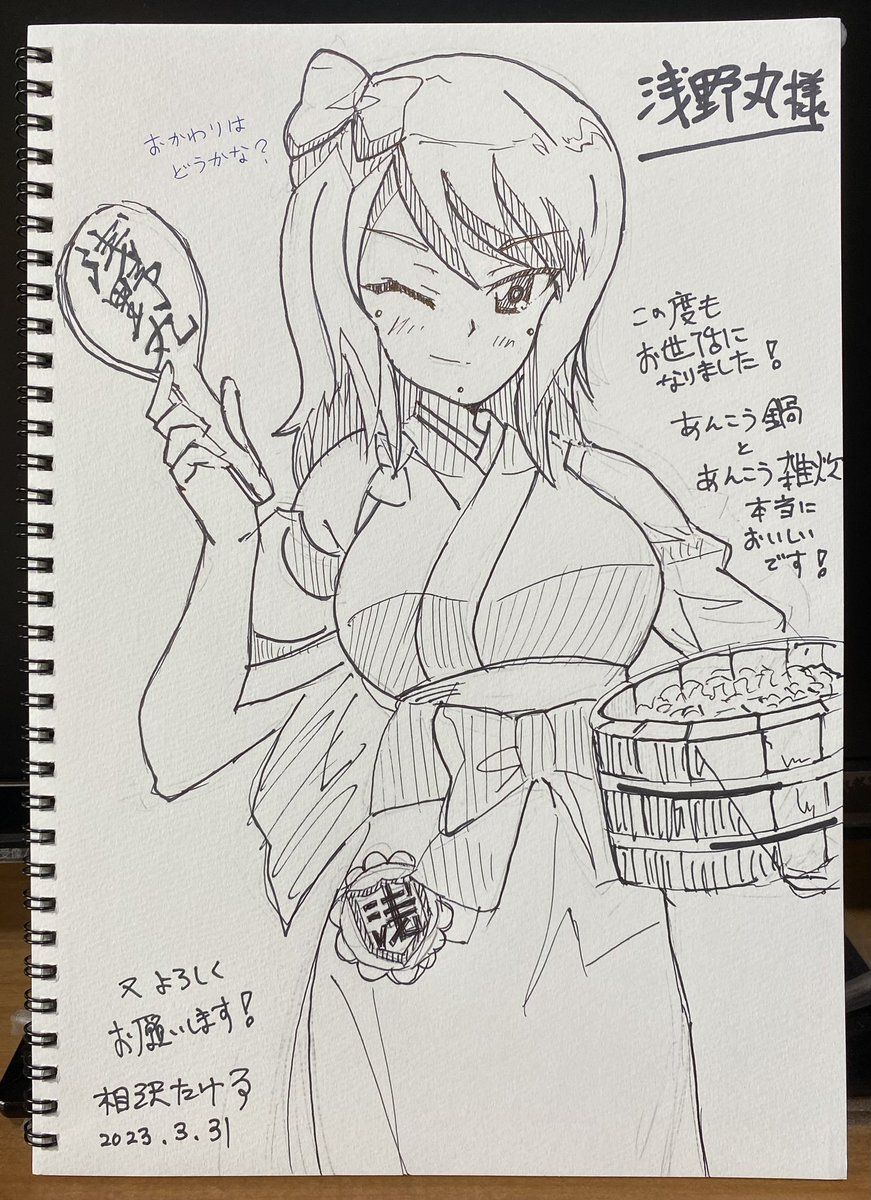 浅野丸様
おかわりは
どうかな？
浅野丸
この度も
お世話に
なりました！
あんこう鍋
と
あんこう雑炊
本当に
おいしい
です！
浅
又よろしく
お願いします！
相沢たける
2023.3.31